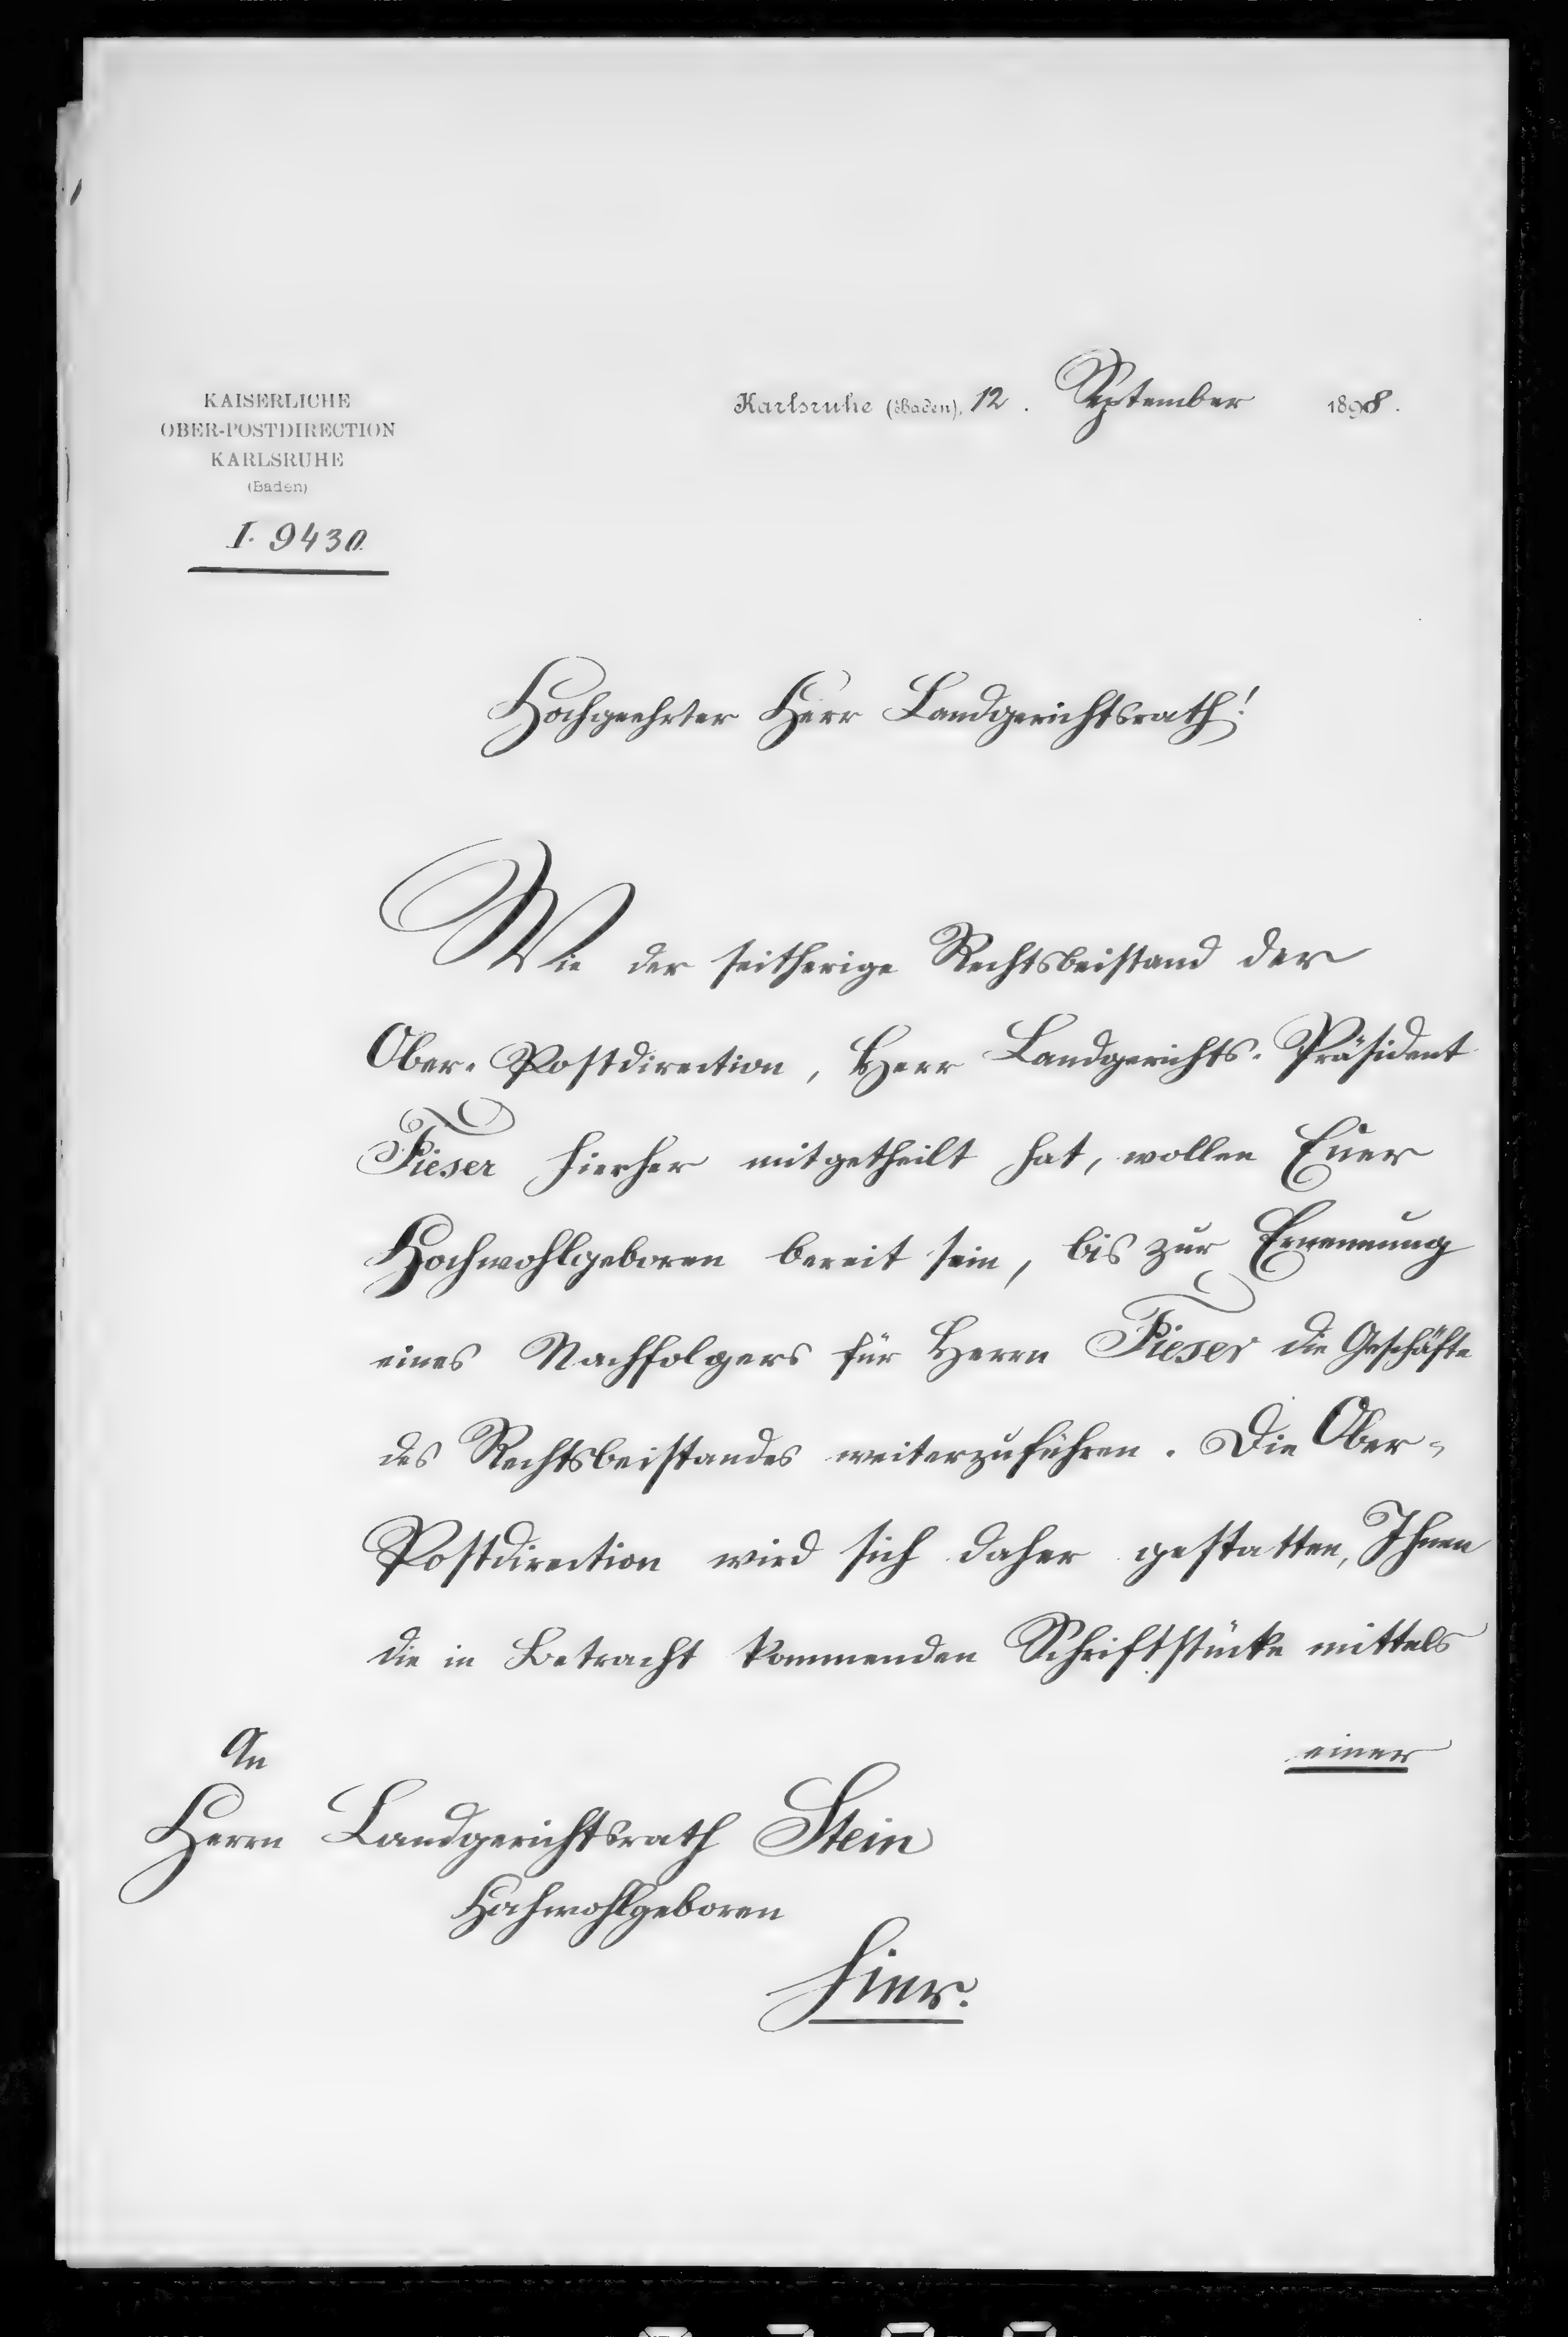 KAISERLICHE
OBER-POSTDIRECTION
KARLSRUHE
(Baden)
I. 9430.
Karlsruhe (Baden), 12. September 1898.
Hochgeehrter Herr Landgerichtsrath!
Wie der seitherige Rechtsbeistand der
Ober-Postdirection, Herr Landgerichts-Präsident
Fieser hierher mitgetheilt hat, wollen Euer
Hochwohlgeboren bereit sein, bis zur Ernennung
eines Nachfolgers für Herrn Fieser die Geschäfte
des Rechtsbeistandes weiterzuführen. Die Ober-
Postdirection wird sich daher gestatten, Ihnen
die in Betracht kommenden Schriftstücke mittels
einer
An
Herrn Landgerichtsrath Stein
Hochwohlgeboren
hier.